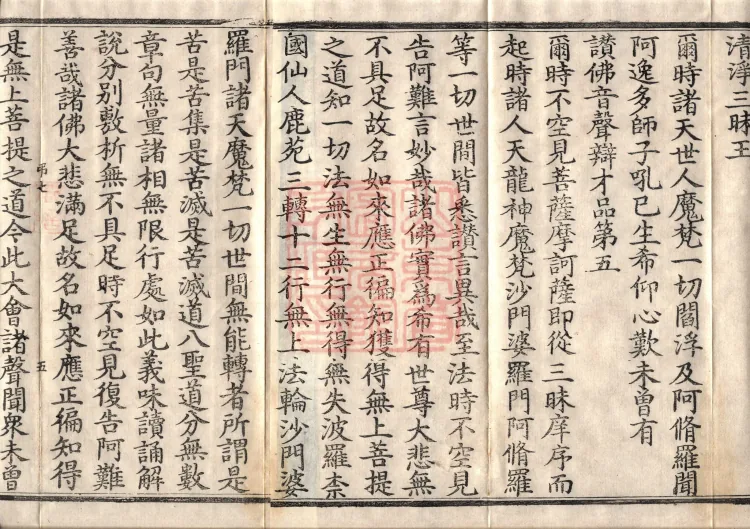 清淨三昧王
爾時諸天世人魔梵一切閻浮及阿脩羅聞
阿逸多師子吼已生希仰心歎未曾有
讃佛音聲辯才品第五
爾時不空見菩薩摩訶薩即從三昧庠序而
起時諸人天龍神魔梵沙門婆羅門阿脩羅
等一切世間皆悉讃言異哉至法時不空見
告阿難言妙哉諸佛實爲希有世尊大悲無
不具足故名如來應正徧知獲得無上菩提
之道知一切法無生無行無得無失波羅柰
國仙人鹿苑三轉十二行無上法輪沙門婆
羅門諸天魔梵一切世間無能轉者所謂是
苦是苦集是苦滅是苦滅道八聖道分無數
章句無量諸相無限行處如此義味讀誦解
說分別敷析無不具足時不空見復告阿難
善哉諸佛大悲滿足故名如來應正徧知得
弟七
五
是無上菩提之道令此大會諸聲聞衆未曾